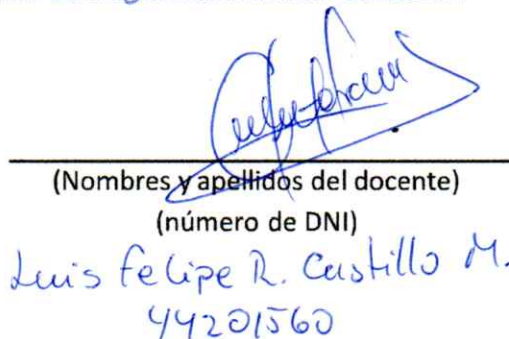 (Nombres y apellidos del docente)
(número de DNI)
Luis Felipe R. Castillo M.
44201560